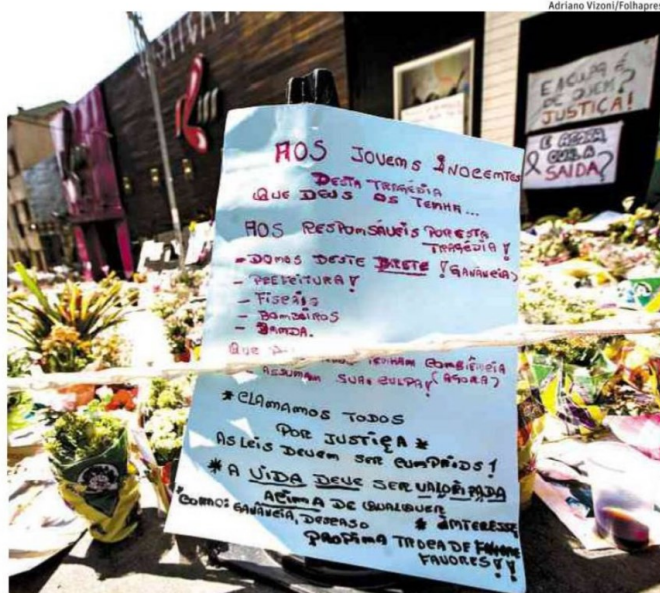 Adriano Vizoni/Folhapres
E A CULPA É
DE QUEM?
JUSTIÇA!
E AGORA
QUAL A
SAÍDA?
AOS JOVENS INOCENTES
DESTA TRAGÉDIA
QUE DEUS OS TENHA...
AOS RESPONSÁVEIS POR ESTA
TRAGÉDIA!
- DONOS DESTE BRETE! (GANÂNCIA)
- PREFEITURA!
- FISCAIS
- BOMBEIROS
- BANDA.
QUE TENHAM CONSIÊNCIA
ASSUMAM SUAS CULPA! (AGORA)
* CLAMAMOS TODOS
POR JUSTIÇA *
AS LEIS DEVEM SER CUMPRIDOS!
* A VIDA DEVE SER VALORIZADA
ACIMA DE QUALQUER
* INTERESSE
COMO: GANÂNCIA, DESCASO
PROPINA TROCA DE
FAVORES!!